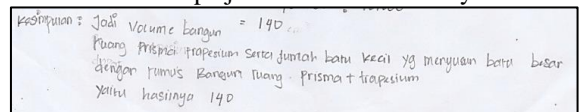 Kesimpulan : Jadi Volume bangun = 140
Ruang prisma trapesium serta jumlah batu kecil yg menyusun batu besar
dengan rumus Bangun ruang prisma + trapesium
yaitu hasilnya 140